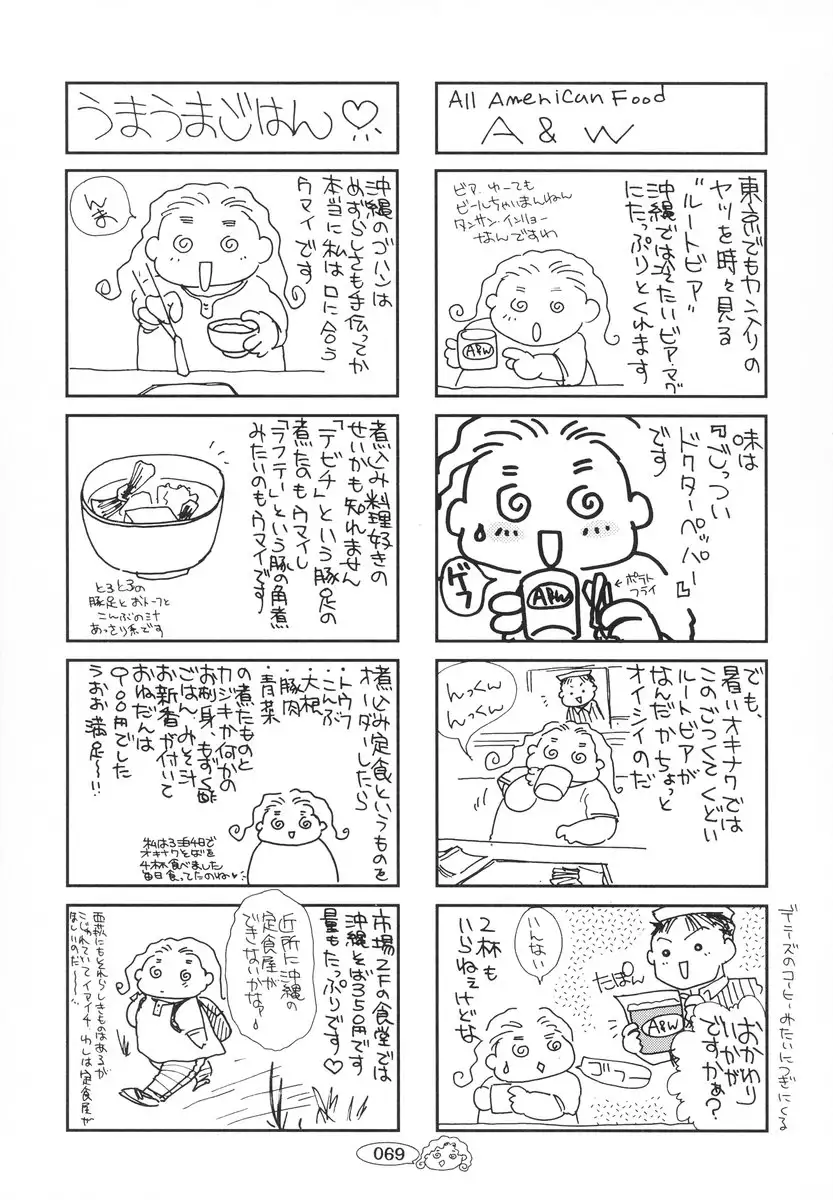 All American Food
A & W
東京でもカン入りの
ヤツを時々見る
"ルートビア"
沖縄では冷たいビア・マグ
にたっぷりとくれます
ビア、ゆーても
ビールちゃいまんねん
タンサン・インリョー
なんですわ
A&W
味は
『ごっつい
ドクターペッパー』
です
ゲフ
A&W
←ポテト
フライ
でも、
暑いオキナワでは
このごっつくてくどい
ルートビアが
なんだかちょっと
オイシイのだ
んっくん
んっくん
おかわり
いかが
ですかぁ?
たぽん
A&W
いんない
2杯も
いらねぇけどな
ゴフー
デニーズのコーヒーみたいにつぎにくる
うまうまごはん♡
沖縄のゴハンは
めずらしさも手伝ってか
本当に私は口に合う
ウマイです
んま
煮込み料理好きの
せいかも知れません
「テビチ」という豚足の
煮たのもウマイし
「ラフテー」という豚の角煮
みたいのもウマイです
とろとろの
豚足とおトーフと
こんぶの汁
あっさり系です
煮込み定食というものを
オーダーしたら
・トウフ
・こんぶ
・大根
・豚肉
・青菜
の煮たものと
カジキか何かの
お刺身、もずく酢
ごはん、みそ汁
お新香が付いて
おねだんは
900円でした
うおお満足〜!!
私は3泊4日で
オキナワそばを
4杯食べました
毎日食ってたのね
市場2Fの食堂では
沖縄そば350円です
量もたっぷりです♡
近所に沖縄の
定食屋が
できないかな?
西荻にもそれらしきものはあるが
こじゃれていてイマイチ わしは定食屋が
ほしいのだ〜〜
069